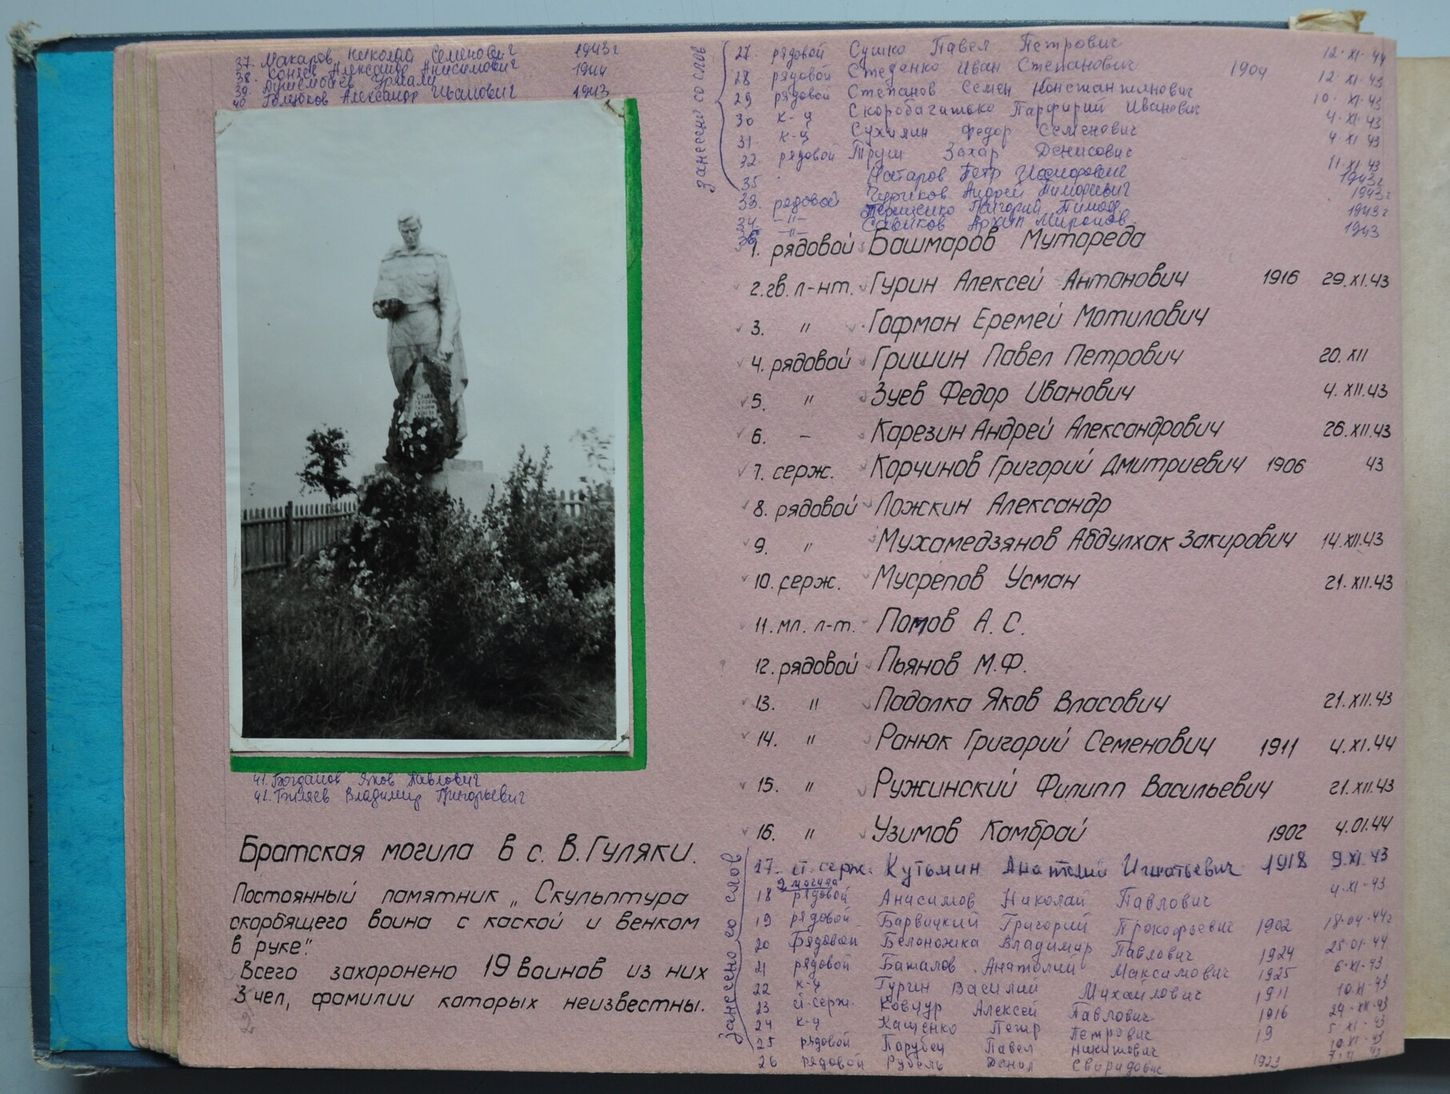 37. Макаров Николай Семенович 1943г
38. Концев Александр Анисимович 1944
39.
40. Голюков Александр Иванович 1943
41. Богданов Яков Павлович
42. Беляев Владимир Григорьевич
Братская могила в с. В. Гуляки.
Постоянный памятник „Скульптура
скорбящего воина с каской и венком
в руке".
Всего захоронено 19 воинов из них
3 чел, фамилии которых неизвестны.
занесено со слов
27. рядовой Сушко Павел Петрович 12·XI·44
28 рядовой Стеденко Иван Степанович 1904 12·XI·43
29 рядовой Степанов Семен Константинович 10·XI·43
30 к-ц Скоробагатько Парфирий Иванович 4·XI·43
31 к-ц Сухилин Федор Семенович 4·XI·43
32 рядовой Труш Захар Денисович 11·XI·43
35 Петр 1943г
33. рядовой Чуриков Андрей Тимофеевич 1943г
34. –"– Григорий 1943г
36 –"– Савиков Архип Миронов. 1943
1. рядовой Башмаров Мутореда
2. гв. л-нт. Гурин Алексей Антанович 1916 29.XI.43
3. " Гофман Еремей Мотилович
4. рядовой Гришин Павел Петрович 20.XII
5. " Зуев Федор Иванович 4.XII.43
6. – Карезин Андрей Александрович 26.XII.43
7. серж. Корчинов Григорий Дмитриевич 1906 43
8. рядовой Ложкин Александр
9. " Мухамедзянов Абдулхак Закирович 14.XII.43
10. серж. Мусрепов Усман 21.XII.43
11. мл. л-т. Помов А. С.
12. рядовой Пьянов М.Ф.
13. " Падалка Яков Власович 21.XII.43
14. " Ранюк Григорий Семенович 1911 4.XI.44
15. " Ружинский Филипп Васильевич 21.XII.43
16. " Узимов Камбрай 1902 4.01.44
занесено со слов
17. ст. серж. Кутьмин Анатолий Игнатьевич 1918 9.XI.43
2 могила
18 рядовой Анисимов Николай Павлович 4·XI·43
19 рядовой Барвицкий Григорий Прокофьевич 1902 18·04·44г
20 Рядовой Белоножка Владимир Павлович 1924 25·01·44
21 рядовой Баталов Анатолий Максимович 1925 6·XI·43
22 к-ц Гургин Василий Михайлович 1911 10·XI·43
23 ст. серж. Ковчур Алексей Павлович 1916 29·XII·43
24 к-ц Кащенко Петр Петрович 19 5·XI·43
25 рядовой Парубец Павел Никитович 10·XI·43
26 рядовой Рубель Данил Свиридович 1923